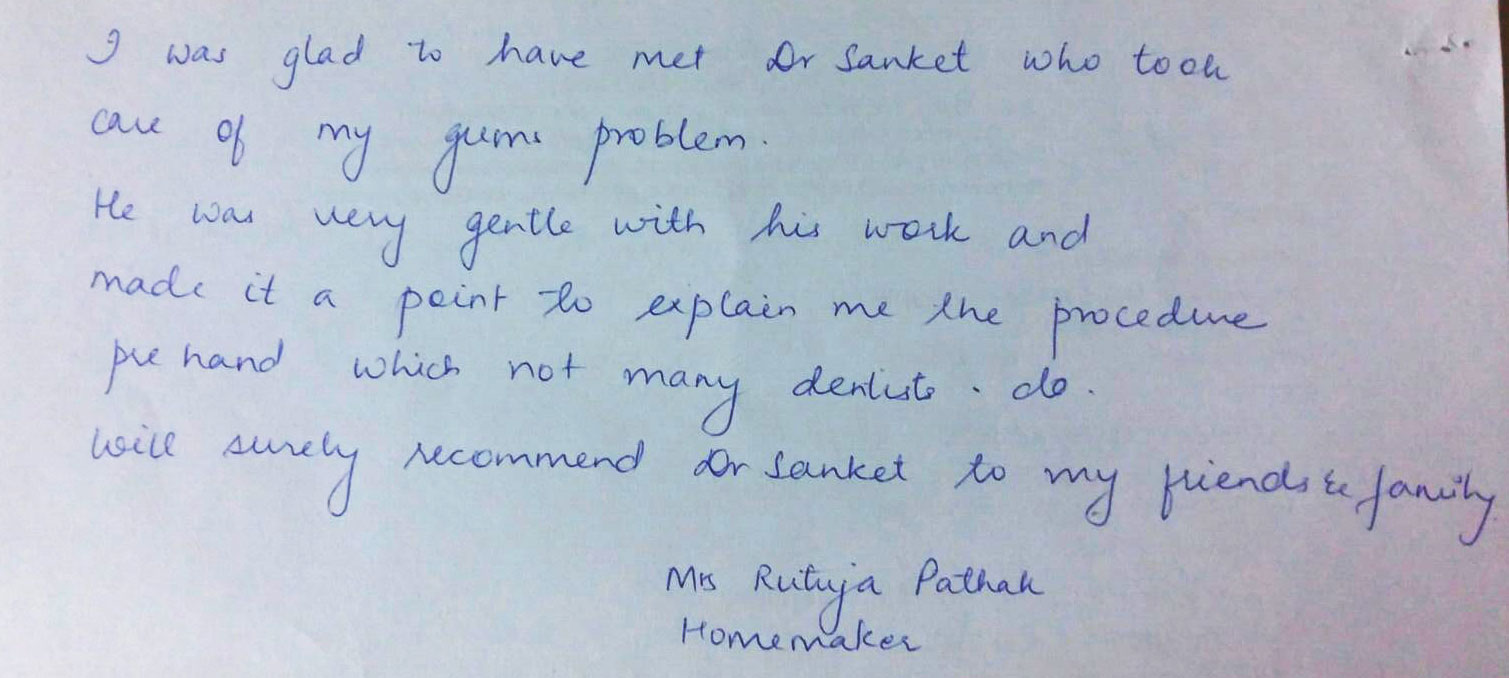 I was glad to have met Dr Sanket who took
care of my gums problem.
He was very gentle with his work and
made it a point to explain me the procedure
pre hand which not many dentists. do.
Will surely recommend Dr Sanket to my friends & family
Mrs Rutuja Pathak
Homemaker